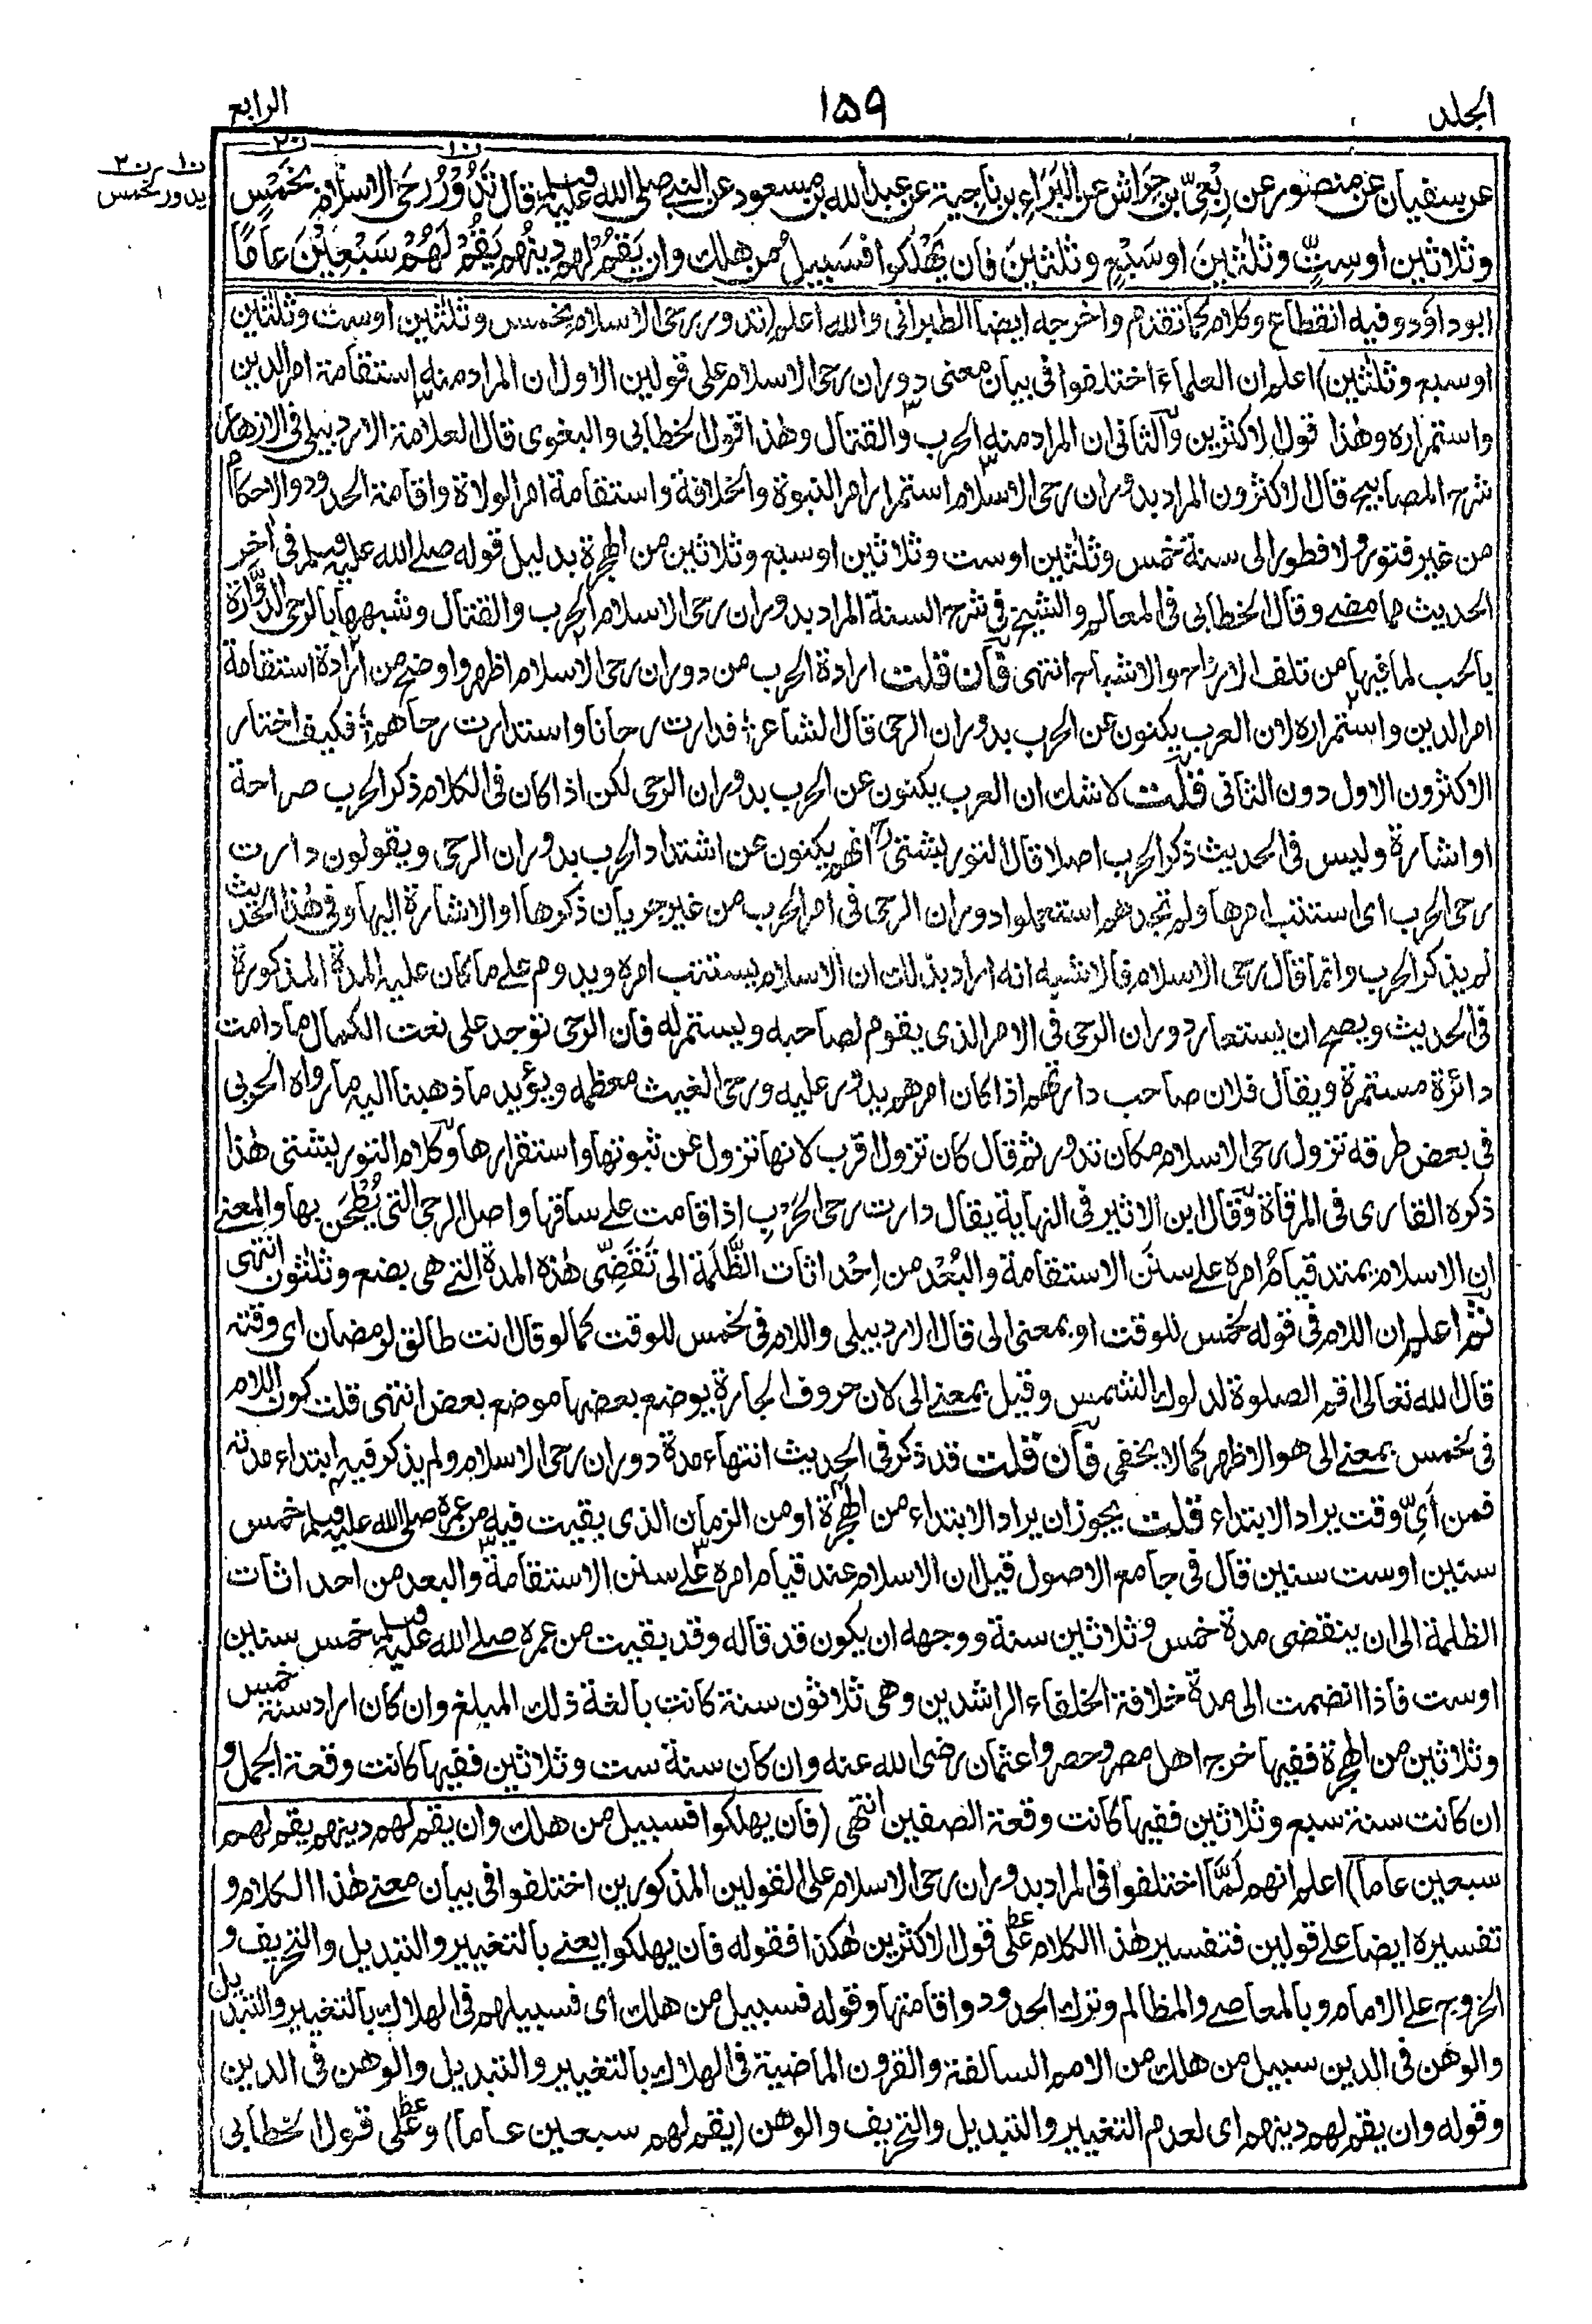 الجلد ١٥٩ الرابع
ن١ ن٢
ن١ ن٢
يدور بخمس
عن سفيان عن منصور عن رِبْعِيّ بن حِرَاش عن البَرَاءِ بن ناجية عن عبد الله بن مسعود عن النبي صلى الله عليه وسلم قال تَدُوْرُ رَحَى الاسلام بخَمْسٍ
وثلاثين أو سِتٍّ وثَلٰثينَ او سَبْعٍ وثلثينَ فان يَهْلَكوا فسَبيلُ من هلك وان يَقُمْ لهم دينُهم يَقُمْ لَهُمْ سَبْعِيْنَ عَامًا
ابو داؤد وفيه انقطاع وكلام كما تقدم واخرجه ايضا الطبرانى والله اعلم (تدور رحى الاسلام بخمس وثلثين او ست وثلثين
او سبع وثلثين) اعلم ان العلماء اختلفوا فى بيان معنى دوران رحى الاسلام على قولين الاول ان المراد منه استقامة امر الدين
واستمراره وهذا قول الاكثرين والثانى ان المراد منه الحرب والقتال وهذا قول الخطابى والبغوى قال العلامة الاردبيلى فى الازهار
شرح المصابيح قال الاكثرون المراد بدوران رحى الاسلام استمرار امر النبوة والخلافة واستقامة امر الولاة واقامة الحدود والاحكام
من غير فتور ولا فطور الى سنة خمس وثلثين او ست وثلاثين او سبع وثلاثين من الهجرة بدليل قوله صلى الله عليه وسلم فى آخر
الحديث مما مضى وقال الخطابى فى المعالم والشيخ فى شرح السنة المراد بدوران رحى الاسلام الحرب والقتال وشبهها بالرحى الدوّارة
بالحب لما فيها من تلف الارواح والاشباح انتهى فان قلت ارادة الحرب من دوران رحى الاسلام اظهر واوضح من ارادة استقامة
امر الدين واستمراره لان العرب يكنون عن الحرب بدوران الرحى قال الشاعر فدارت رحانا واستدارت رحاهم فكيف اختار
الاكثرون الاول دون الثانى قلت لاشك ان العرب يكنون عن الحرب بدوران الرحى لكن اذا كان فى الكلام ذكر الحرب صراحة
او اشارة وليس فى الحديث ذكر الحرب اصلا قال التوربشتى رح انهم يكنون عن اشتداد الحرب بدوران الرحى ويقولون دارت
رحى الحرب اى استتب امرها ولم تجدهم استعملوا دوران الرحى فى امر الحرب من غير جريان ذكرها او الاشارة اليها وفى هذا الحديث
لم يذكر الحرب وانما قال رحى الاسلام فالاشبه انه اراد بذلك ان الاسلام يستتب امره ويدوم على ما كان عليه المدة المذكورة
فى الحديث ويصح ان يستعار دوران الرحى فى الامر الذى يقوم لصاحبه ويستمر له فان الرحى توجد على نعت الكمال ما دامت
دائرة مستمرة ويقال فلان صاحب دارتهم اذا كان امرهم يدور عليه ورحى الغيث معظمه ويؤيد ما ذهبنا اليه ما رواه الحربى
فى بعض طرقه تزول رحى الاسلام مكان تدور ثم قال كان تزول اقرب لانها تزول عن ثبوتها واستقرارها وكلام التوربشتى هذا
ذكره القارى فى المرقاة وقال ابن الاثير فى النهاية يقال دارت رحى الحَرْبِ اذا قامت على ساقها واصل الرحى التى يُطْحَن بها والمعنى
ان الاسلام يمتد قيامُ امره على سنَن الاستقامة والبُعْد من اِحْداثات الظَّلَمَة الى تَقَضِّى هٰذه المدة التى هى بضع وثلٰثون انتهى
ثم اعلم ان اللام فى قوله لخمس للوقت او بمعنى الى قال الاردبيلى واللام فى لخمس للوقت كما لو قال انت طالق لرمضان اى وقته
قال الله تعالى اقم الصلوة لدلوك الشمس وقيل بمعنى الى لان حروف الجارة يوضع بعضها موضع بعض انتهى قلت كون اللام
فى لخمس بمعنى الى هو الاظهر كما لا يخفى فان قلت قد ذكر فى الحديث انتهاء مدة دوران رحى الاسلام ولم يذكر فيه ابتداء مدته
فمن اَىِّ وقت يراد الابتداء قلت يجوز ان يراد الابتداء من الهجرة او من الزمان الذى بقيت فيه من عمره صلى الله عليه وسلم خمس
سنين او ست سنين قال فى جامع الاصول قيل ان الاسلام عند قيام امره على سنن الاستقامة والبعد من احداثات
الظلمة الى ان ينقضى مدة خمس وثلاثين سنة ووجهه ان يكون قد قاله وقد بقيت من عمره صلى الله عليه وسلم خمس سنين
او ست فاذا انضمت الى مدة خلافة الخلفاء الراشدين وهى ثلاثون سنة كانت بالغة ذلك المبلغ وان كان اراد سنة خمس
وثلاثين من الهجرة ففيها خرج اهل مصر وحصروا عثمان رضى الله عنه وان كان سنة ست وثلاثين ففيها كانت وقعة الجمل و
ان كانت سنة سبع وثلاثين ففيها كانت وقعة الصفين انتهى (فان يهلكوا فسبيل من هلك وان يقم لهم دينهم يقم لهم
سبعين عاما) اعلم انهم لَمَّا اختلفوا فى المراد بدوران رحى الاسلام على القولين المذكورين اختلفوا فى بيان معنى هٰذا الكلام و
تفسيره ايضا على قولين فتفسير هٰذا الكلام على قول الاكثرين هكذا فقوله فان يهلكوا يعنى بالتغيير والتبديل والتحريف و
الخروج على الامام وبالمعاصى والمظالم وترك الحدود واقامتها وقوله فسبيل من هلك اى فسبيلهم فى الهلاك بالتغيير والتبديل
والوهن فى الدين سبيل من هلك من الامم السالفة والقرون الماضية فى الهلاك بالتغيير والتبديل والوهن فى الدين
وقوله وان يقم لهم دينهم اى لعدم التغيير والتبديل والتحريف والوهن (يقم لهم سبعين عاما) وعلى قول الخطابى